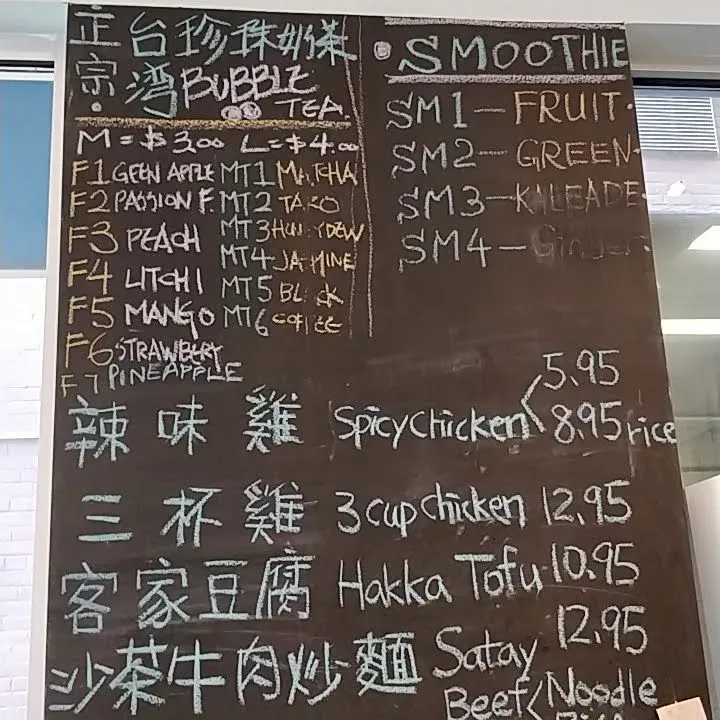 正宗
台灣珍珠奶茶
BUBBLE TEA
M = $3.00 L = $4.00
F1 GEEN APPLE MT1 MATCHA
F2 PASSION F. MT2 TARO
F3 PEACH MT3 HONEYDEW
F4 LITCHI MT4 JASMINE
F5 MANGO MT5 BLACK
F6 STRAWBERY MT6 COFFEE
F7 PINEAPPLE
SMOOTHIE
SM1 - FRUIT
SM2 - GREEN
SM3 - KALEADE
SM4 - Ginger
辣味雞 Spicy chicken 5.95
8.95 rice
三杯雞 3 cup chicken 12.95
客家豆腐 Hakka Tofu 10.95
沙茶牛肉炒麵 Satay Beef 12.95
Noodle